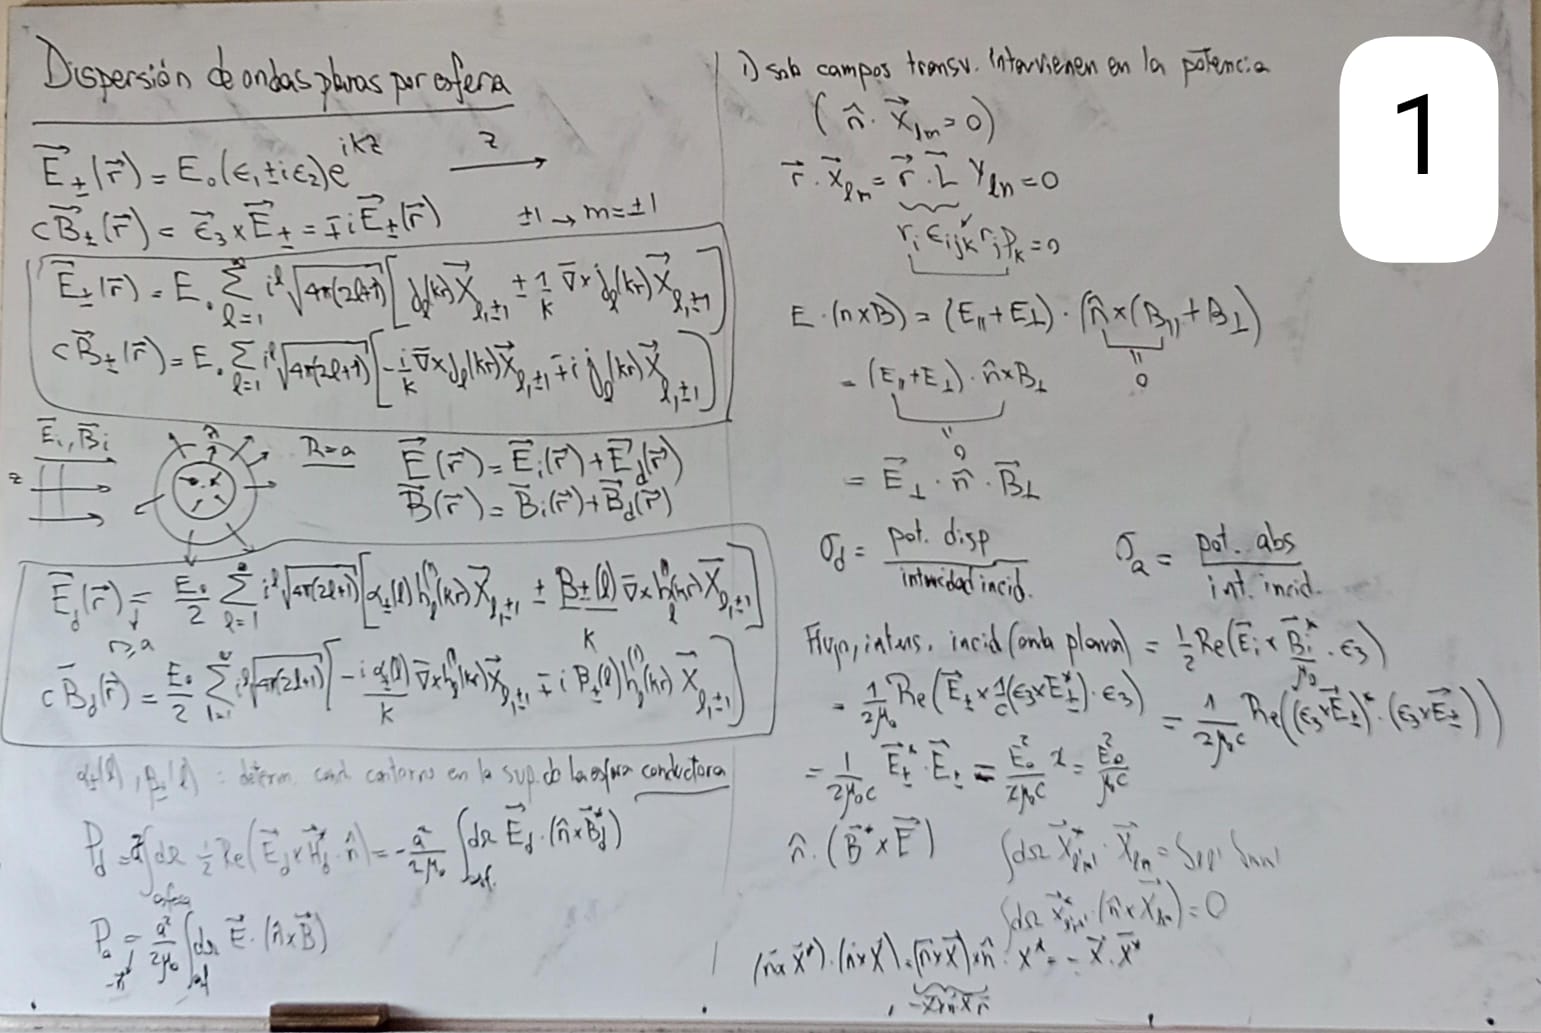 Dispersión de ondas planas por esfera
E⃗±(r⃗) = E₀(ϵ₁±iϵ₂)e^{ikz}   z →
cB⃗±(r⃗) = ϵ⃗₃×E⃗± = ∓iE⃗±(r⃗)   ±1 → m=±1
E⃗±(r⃗) = E₀ Σ_{l=1}^{∞} i^l √(4π(2l+1)) [ j_l(kr)X⃗_{l,±1} ± 1/k ∇⃗× j_l(kr)X⃗_{l,±1} ]
cB⃗±(r⃗) = E₀ Σ_{l=1} i^l √(4π(2l+1)) [ -i/k ∇⃗× j_l(kr)X⃗_{l,±1} ∓ i j_l(kr)X⃗_{l,±1} ]
E⃗i, B⃗i
z
R=a
E⃗(r⃗) = E⃗i(r⃗)+E⃗d(r⃗)
B⃗(r⃗) = B⃗i(r⃗)+B⃗d(r⃗)
E⃗d(r⃗) = E₀/2 Σ_{l=1}^{∞} i^l √(4π(2l+1)) [ α±(l)h_l^{(1)}(kr)X⃗_{l,±1} ± β±(l)/k ∇⃗× h_l^{(1)}(kr)X⃗_{l,±1} ]
r≥a
cB⃗d(r⃗) = E₀/2 Σ_{l=1}^{∞} i^l √(4π(2l+1)) [ -i α±(l)/k ∇⃗× h_l^{(1)}(kr)X⃗_{l,±1} ∓ i β±(l)h_l^{(1)}(kr)X⃗_{l,±1} ]
α±(l), β±(l) : determ. cond contorno en la sup. de la esfera conductora
Pd = a² ∫_{esfera} dΩ ½ Re(E⃗d×H⃗d* · n̂) = -a²/2μ₀ ∫ dΩ E⃗d · (n̂×B⃗d*)
Pa = a²/2μ₀ ∫ dΩ E⃗ · (n̂×B⃗)
1) solo campos transv. intervienen en la potencia
(n̂ · X⃗_{lm}=0)
r⃗ · X⃗_{lm} = r⃗ · L⃗ Y_{lm} = 0
r_i ϵ_{ijk} r_j p_k = 0
E · (n×B) = (E∥+E⊥) · (n̂×(B∥+B⊥))
0
= (E∥+E⊥) · n̂×B⊥
0
= E⃗⊥ · n̂ · B⃗⊥
σd = pot. disp / intensidad incid.   σa = pot. abs / int. incid.
Flujo, intens. incid (onda plana) = ½ Re(E⃗i × B⃗i*/μ₀ · ϵ₃)
= 1/2μ₀ Re(E⃗± × 1/c(ϵ₃×E⃗±*) · ϵ₃) = 1/2μ₀c Re((ϵ₃×E⃗±)* · (ϵ₃×E⃗±))
= 1/2μ₀c E⃗±* · E⃗± = E₀²/2μ₀c 2 = E₀²/μ₀c
n̂ · (B⃗*×E⃗)   ∫dΩ X⃗*_{l'm'} · X⃗_{lm} = δ_{ll'} δ_{mm'}
∫dΩ X⃗*_{l'm'} · (n̂×X⃗_{lm}) = 0
(n̂×X⃗*) · (n̂×X⃗) = (n̂×X⃗)×n̂ · X* = -X⃗ · X⃗*
-X⃗×n̂×n̂
1